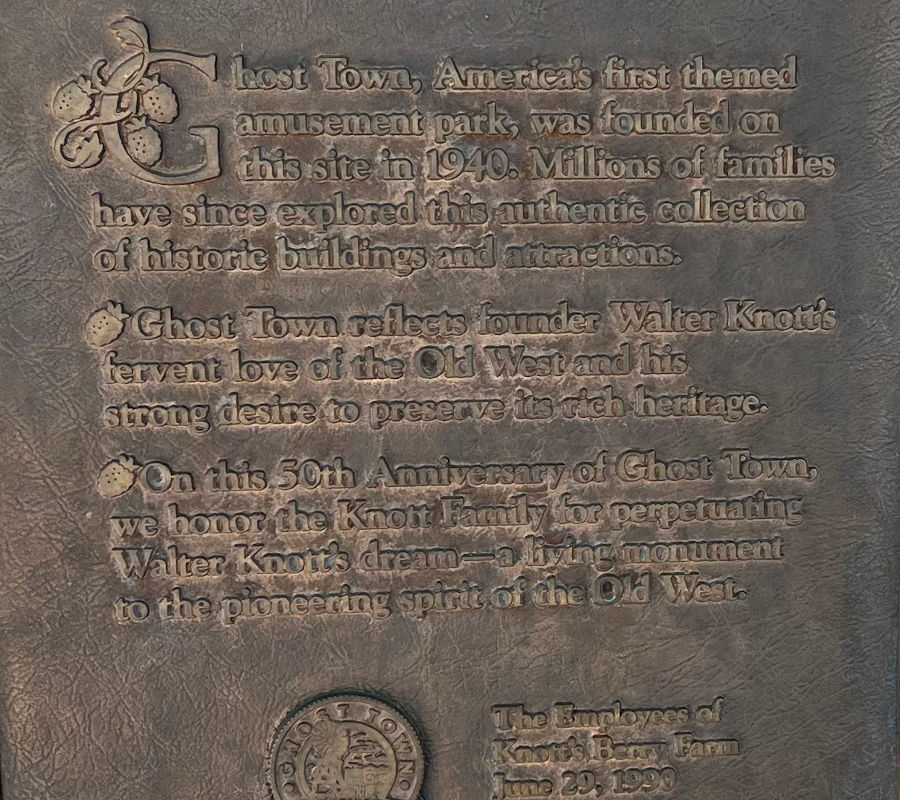 Ghost Town, America's first themed
amusement park, was founded on
this site in 1940. Millions of families
have since explored this authentic collection
of historic buildings and attractions.
Ghost Town reflects founder Walter Knott's
fervent love of the Old West and his
strong desire to preserve its rich heritage.
On this 50th Anniversary of Ghost Town,
we honor the Knott Family for perpetuating
Walter Knott's dream—a living monument
to the pioneering spirit of the Old West.
GHOST TOWN
The Employees of
Knott's Berry Farm
June 29, 1990